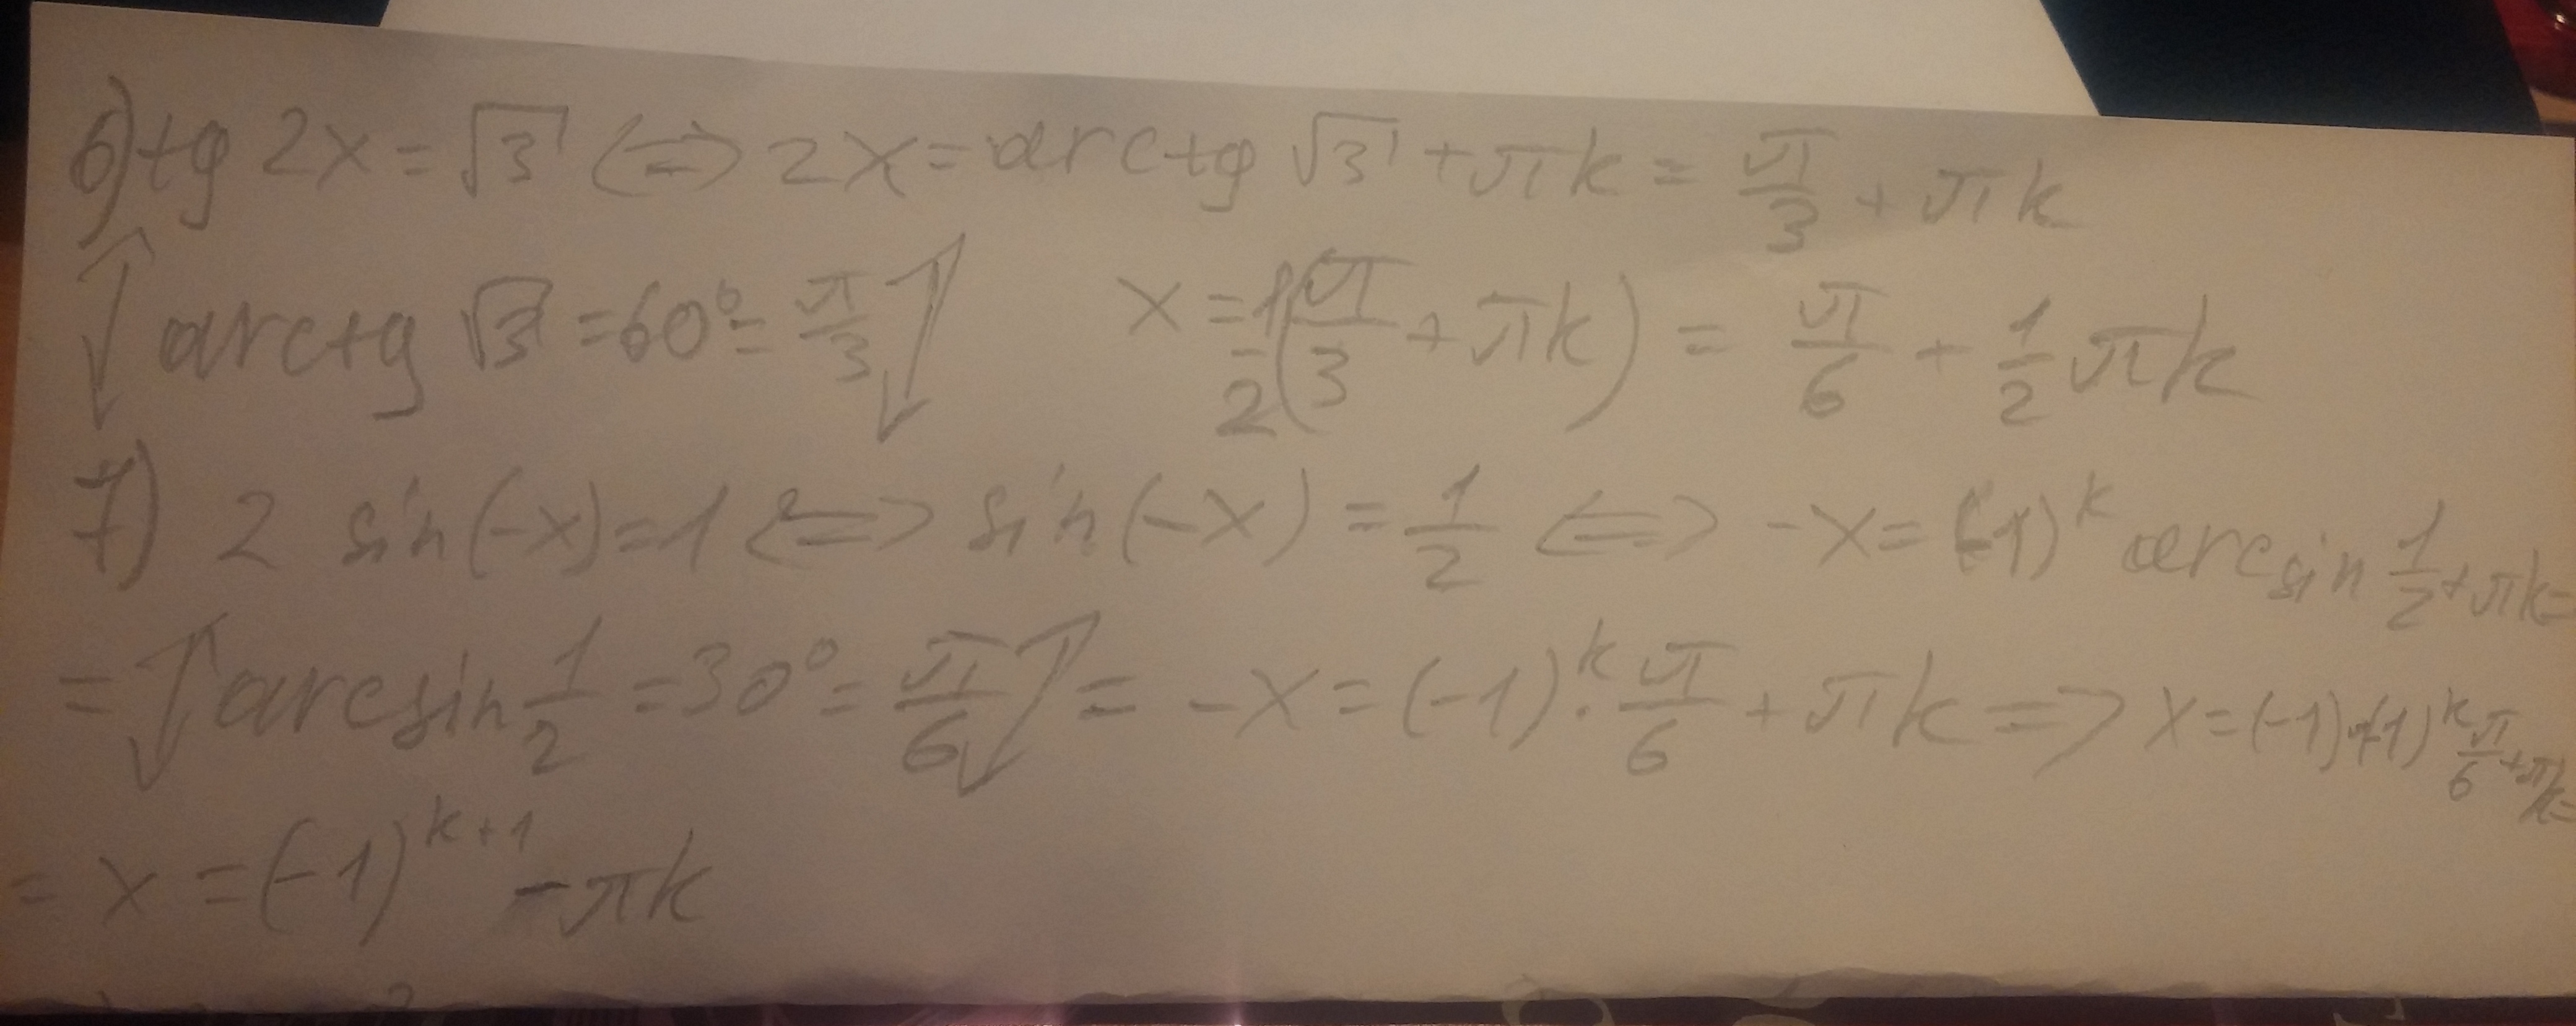 6) tg 2x = √3 <=> 2x = arctg √3 + πk = π/3 + πk
↑ arctg √3 = 60° = π/3 ↓ x = 1/2(π/3 + πk) = π/6 + 1/2 πk
7) 2 sin(-x) = 1 <=> sin(-x) = 1/2 <=> -x = (-1)^k arcsin 1/2 + πk =
= ↑ arcsin 1/2 = 30° = π/6 ↓ = -x = (-1)^k · π/6 + πk => x = (-1)·(-1)^k π/6 + πk =
= x = (-1)^(k+1) - πk